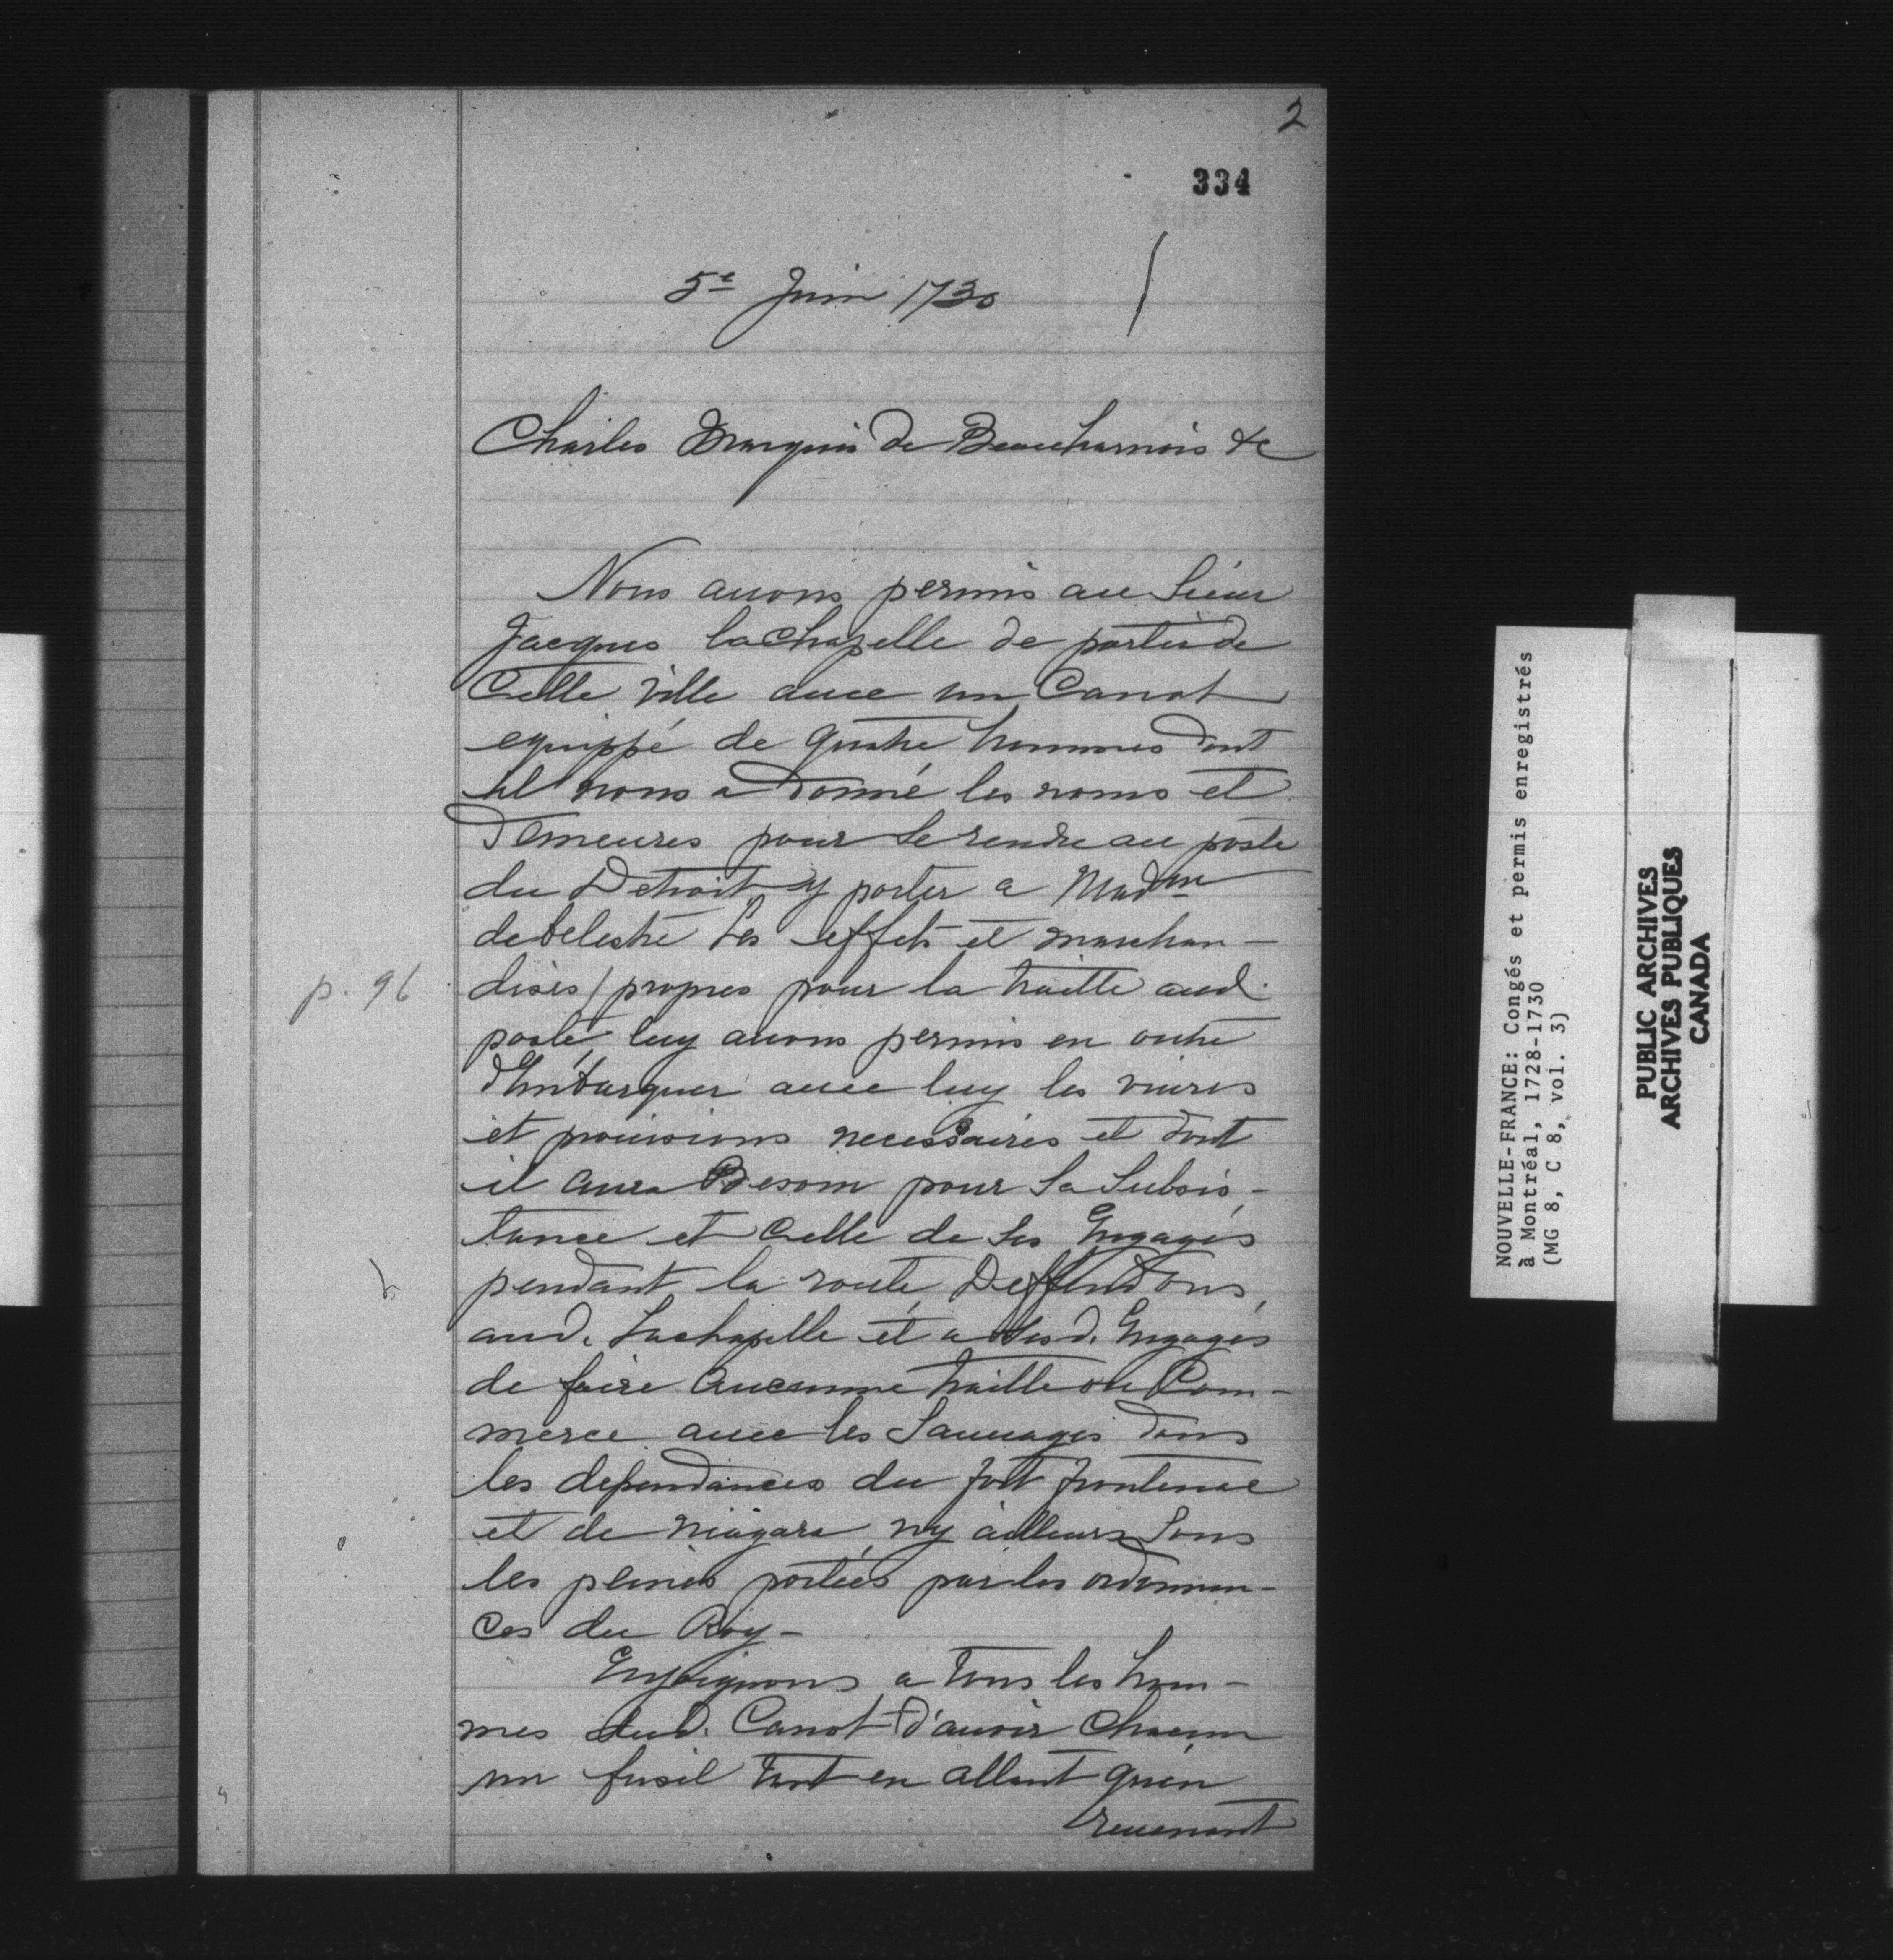 2
334
5e Juin 1730
Charles Marquis de Beauharnois &c
Nous auons permis au Sieur
Jacques lachapelle de partir de
Cette ville auec un Canot
equippé de quatre hommes dont
il nous a donné les noms et
demeures pour Se rendre au poste
du Detroit y porter a Madme
debelestre Les effets et marchan-
dises / propres pour la traitte aud.
p. 96
poste, luy auons permis en outre
d'Embarquer auec luy les viures
et prouisions necessaires et dont
il aura Besoin pour Sa Subsis-
tance et Celle de Ses Engagés
pendant la route, Deffendons,
aud. Lachapelle et a Sesd. Engagés
de faire Aucunne traitte ou Com-
merce auec les Sauuages dans
les dependances du fort frontenac
et de niagara, ny ailleurs Sous
les peines portées par les ordonnan-
ces du Roy-
Enjoignons a tous les hom-
mes dud. Canot d'auoir Chacun
un fusil tant en allant qu'en
reuenant
NOUVELLE-FRANCE: Congés et permis enregistrés
à Montréal, 1728-1730
(MG 8, C 8, vol. 3)
PUBLIC ARCHIVES
ARCHIVES PUBLIQUES
CANADA